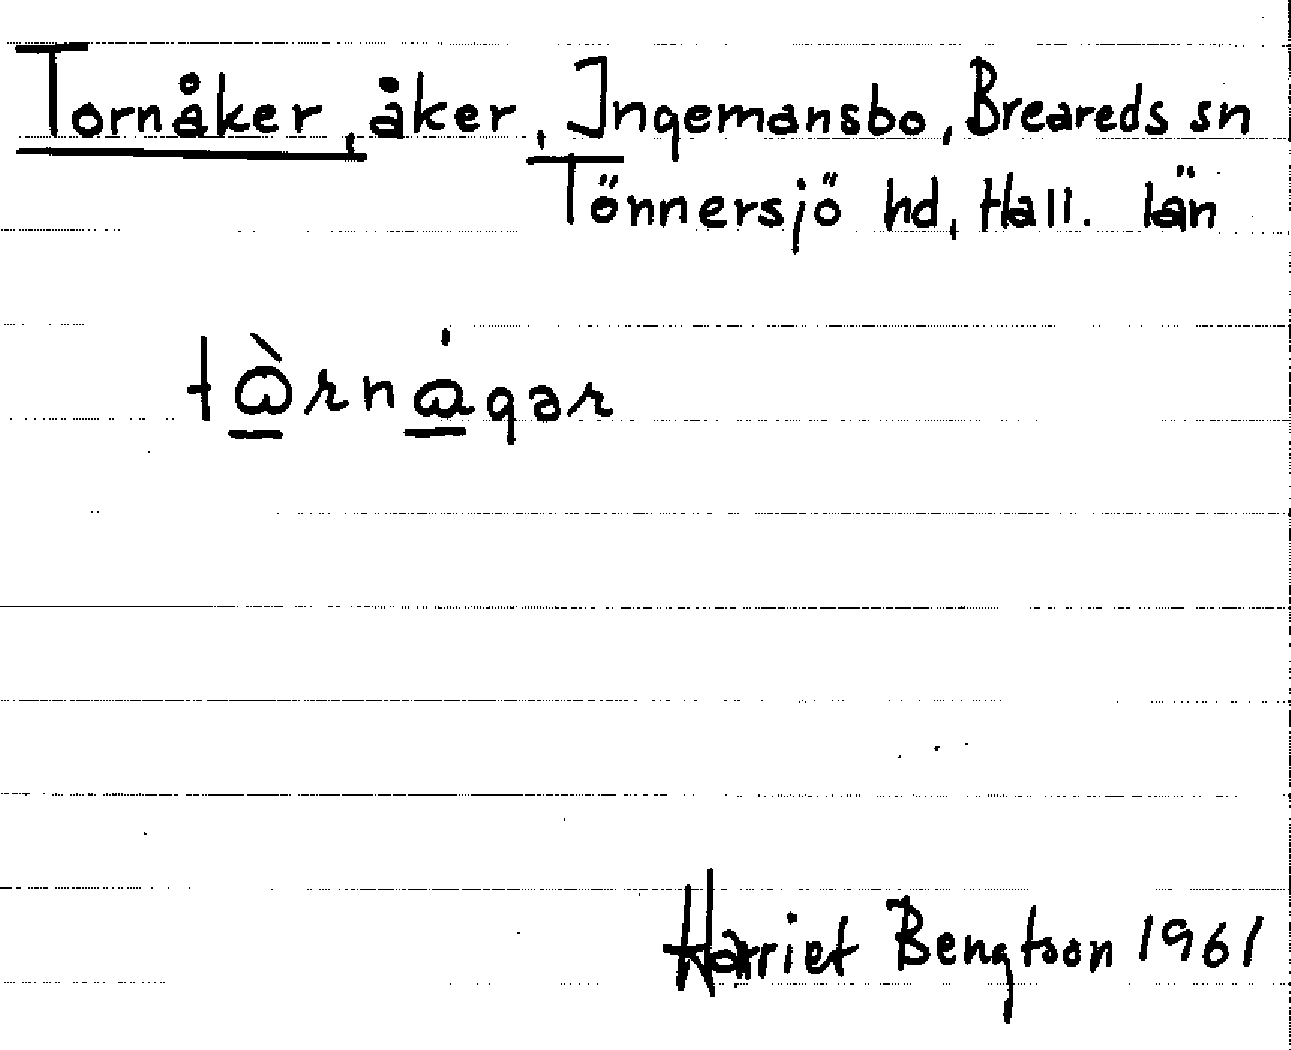 Tornåker, åker, Ingemansbo, Breareds sn
Tönnersjö hd, Hall. län
tàrnágər
Harriet Bengtson 1961